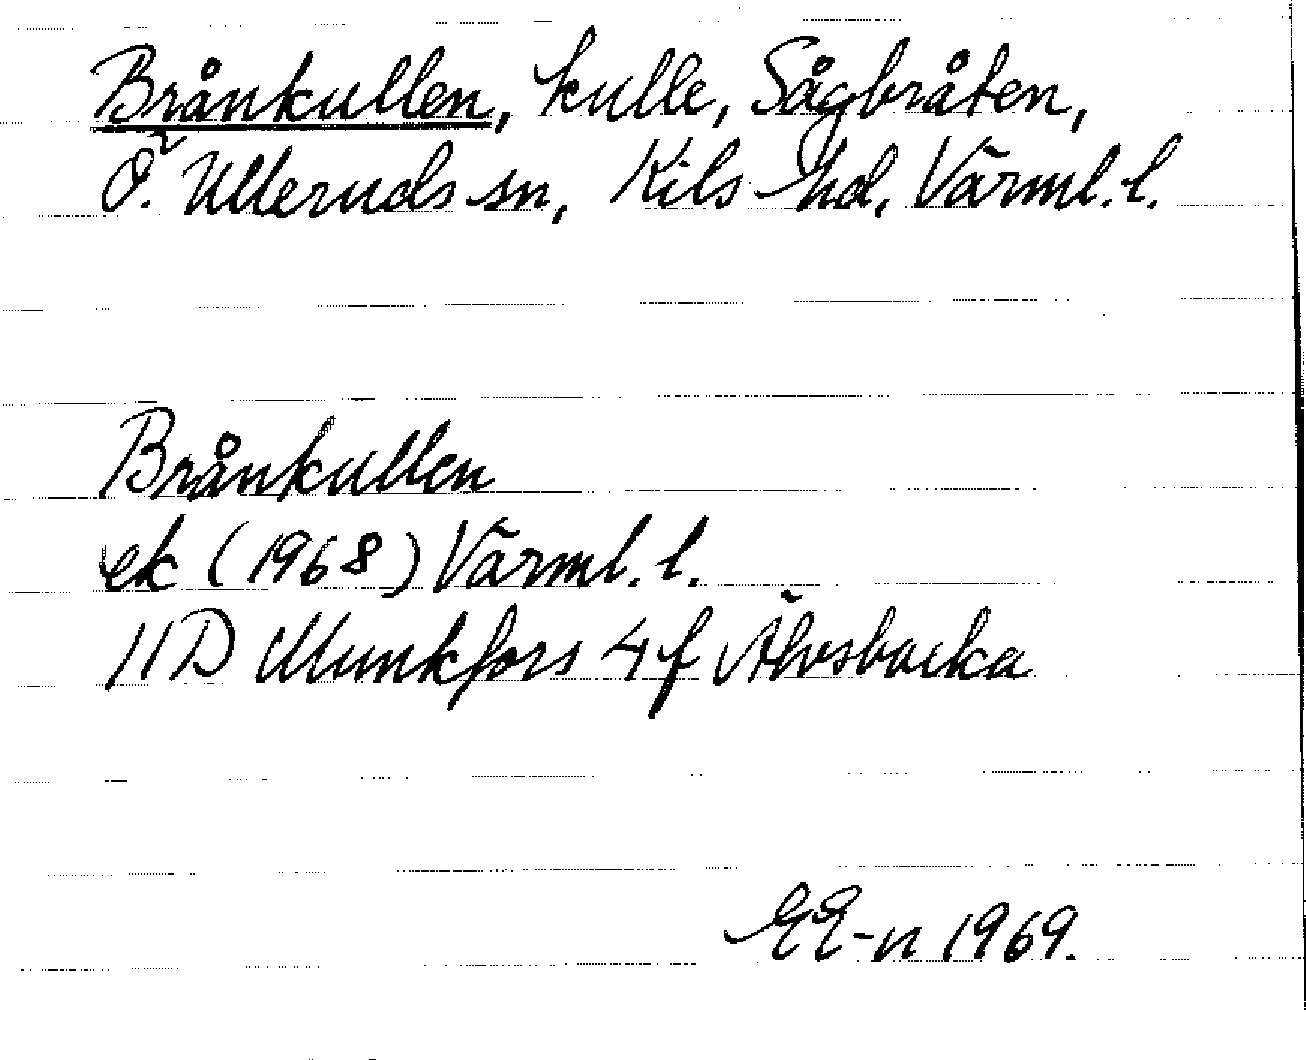 Brånkullen, kulle, Sågbråten,
Ö. Ulleruds sn, Kils hd, Värml. l.
Brånkullen
ek (1968) Värml. l.
11D Munkfors 4f Älvsbacka
EE-n 1969.